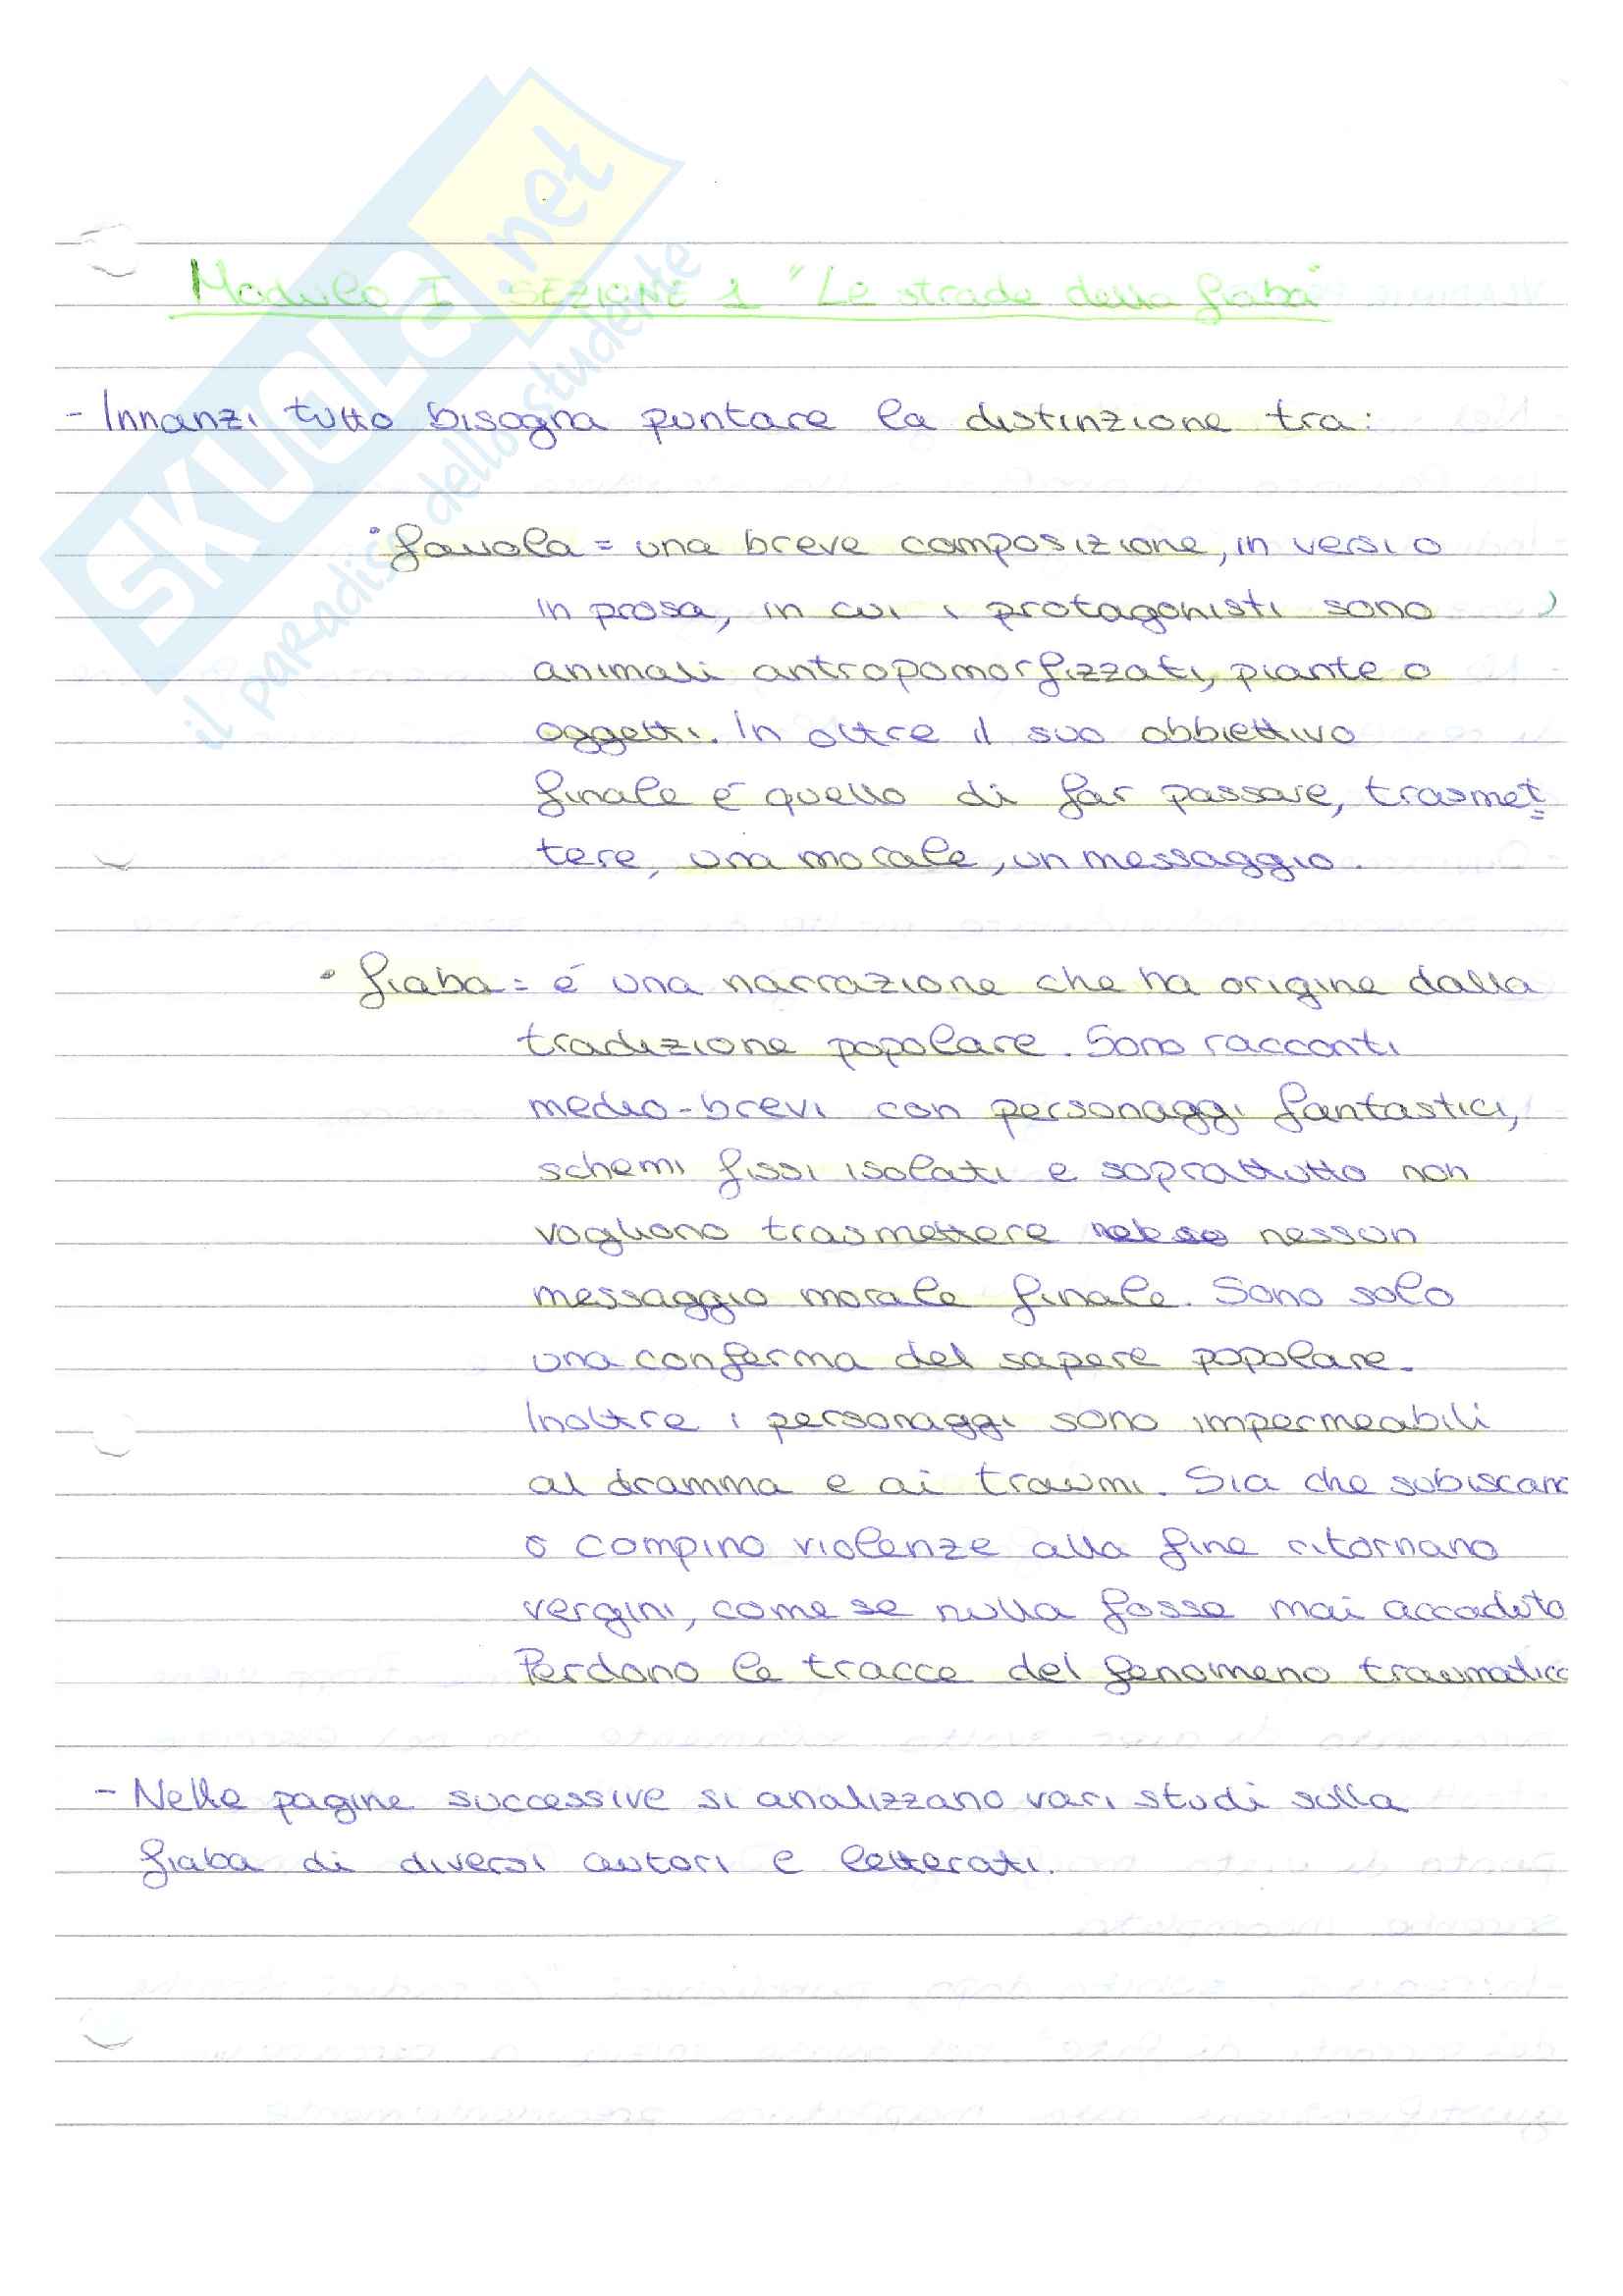 SKUOLA.net
il paradiso dello studente
Modulo I SEZIONE 1 "Le strade della fiaba"
- Innanzi tutto bisogna puntare la distinzione tra:
• favola = una breve composizione, in versi o
in prosa, in cui i protagonisti sono
animali antropomorfizzati, piante o
oggetti. In oltre il suo obbiettivo
finale é quello di far passare, trasmet=
tere, una morale, un messaggio.
• fiaba = é una narrazione che ha origine dalla
tradizione popolare. Sono racconti
medio-brevi con personaggi fantastici,
schemi fissi isolati e soprattutto non
vogliono trasmettere nessun
messaggio morale finale. Sono solo
una conferma del sapere popolare.
Inoltre i personaggi sono impermeabili
al dramma e ai traumi. Sia che subiscano
o compino violenze alla fine ritornano
vergini, come se nulla fosse mai accaduto
Perdono le tracce del fenomeno traumatico
- Nelle pagine successive si analizzano vari studi sulla
fiaba di diversi autori e letterati.